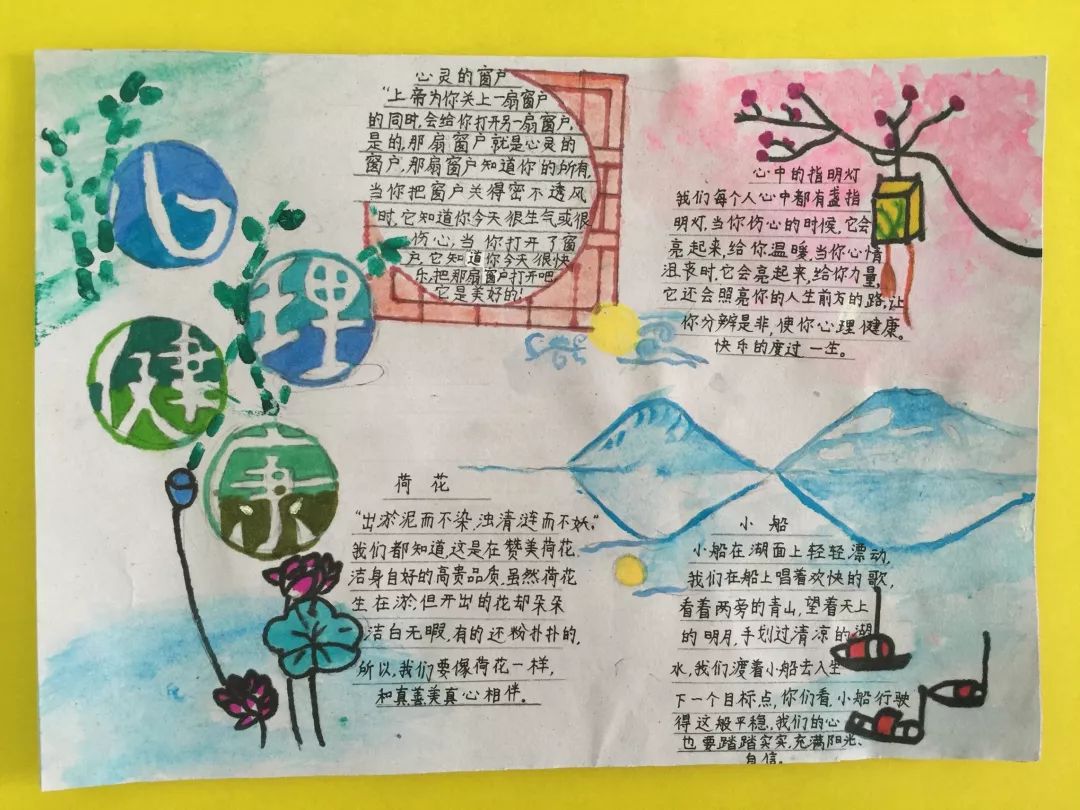 心
理
健
康
心灵的窗户
“上帝为你关上一扇窗户
的同时,会给你打开另一扇窗户,
是的,那扇窗户就是心灵的
窗户,那扇窗户知道你的所有,
当你把窗户关得密不透风
时,它知道你今天很生气或很
伤心,当你打开了窗
户,它知道你今天很快
乐,把那扇窗户打开吧
它是美好的!
心中的指明灯
我们每个人心中都有盏指
明灯,当你伤心的时候,它会
亮起来,给你温暖,当你心情
沮丧时,它会亮起来,给你力量,
它还会照亮你的人生前方的路,让
你分辨是非,使你心理健康。
快乐的度过一生。
荷花
“出淤泥而不染,浊清涟而不妖,”
我们都知道,这是在赞美荷花,
洁身自好的高贵品质,虽然荷花
生在淤,但开出的花却朵朵
洁白无暇,有的还粉扑扑的,
所以,我们要像荷花一样,
和真善美真心相伴。
小船
小船在湖面上轻轻漂动,
我们在船上唱着欢快的歌,
看着两旁的青山,望着天上
的明月,手划过清凉的湖
水,我们渡着小船去人生
下一个目标点,你们看,小船行驶
得这般平稳,我们的心
也要踏踏实实,充满阳光、
自信。